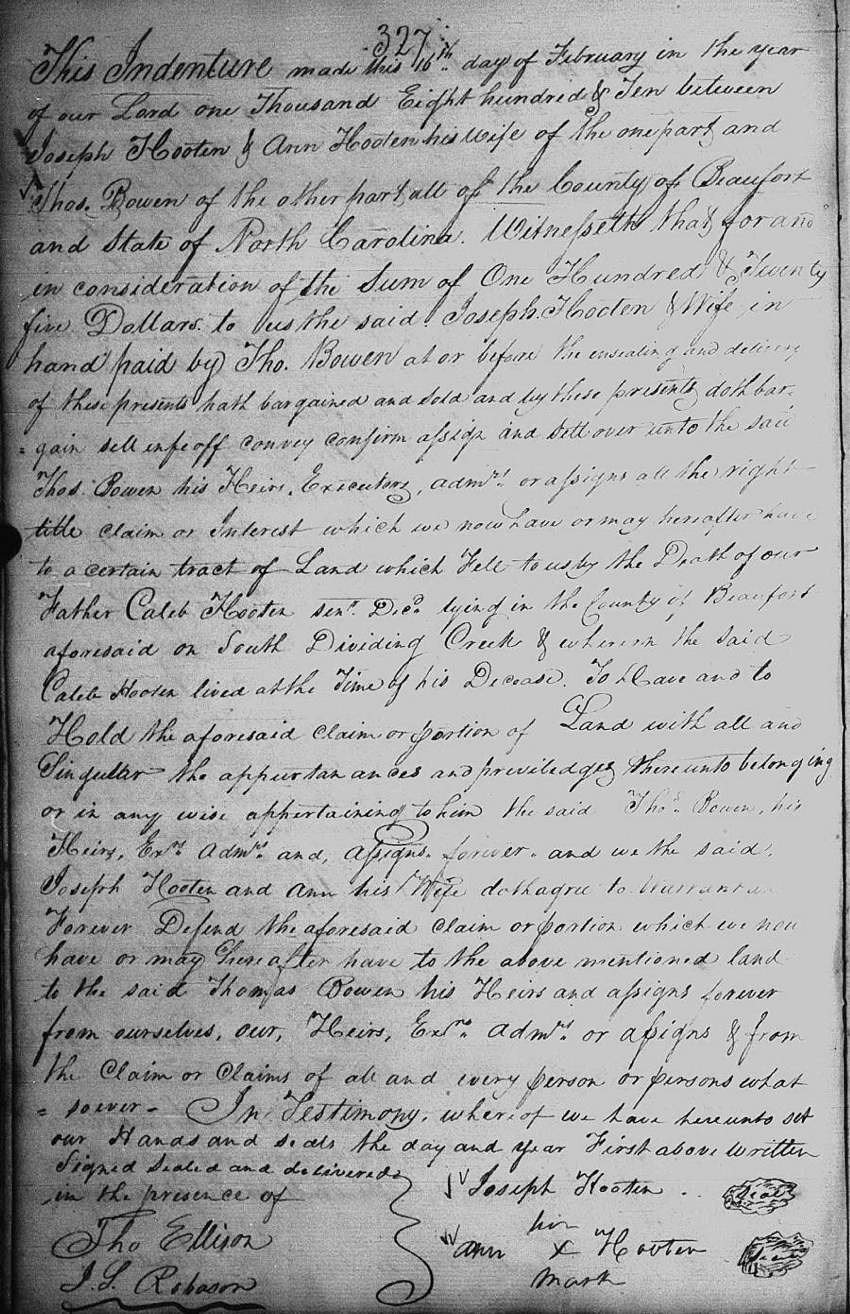 327
This Indenture made this 16th day of February in the year
of our Lord one Thousand Eight hundred & Ten between
Joseph Hooten & Ann Hooten his Wife of the one part and
Thos. Bowen of the other part all of the County of Beaufort
and State of North Carolina. Witnesseth that for and
in consideration of the Sum of One Hundred & Twenty
five Dollars. to us the said Joseph Hooten & Wife in
hand paid by Tho. Bowen at or before the ensealing and delivery
of these presents hath bargained and sold and by these presents doth bar-
=gain sell enfeoff convey confirm assign and sett over unto the said
Thos. Bowen his Heirs, Executors, admrs. or assigns all the right
title claim or Interest which we now have or may hereafter have
to a certain tract of Land which Fell to us by the Death of our
Father Caleb Hooten senr. Decd. lying in the County of Beaufort
aforesaid on South Dividing Creek & wherein the said
Caleb Hooten lived at the Time of his Decease. To Have and to
Hold the aforesaid claim or portion of Land with all and
Singular the appurtanances and priviledges thereunto belonging
or in any wise appertaining to him the said Thos. Bowen, his
Heirs, Exrs. Admrs. and, assigns. forever. and we the said,
Joseph Hooten and Ann his Wife doth agree to Warrant
Forever Defend the aforesaid claim or portion which we now
have or may hereafter have to the above mentioned land
to the said Thomas Bowen his Heirs and assigns forever
from ourselves, our, Heirs, Exrs. Admrs. or assigns & from
the Claim or Claims of all and every person or persons what
=soever- In Testimony, whereof we have hereunto set
our Hands and seals the day and year First above written
Signed Sealed and delivered
in the presence of
Joseph Hooten Seal
Tho Ellison
her
Ann X Hooten Seal
mark
J. S. Robason